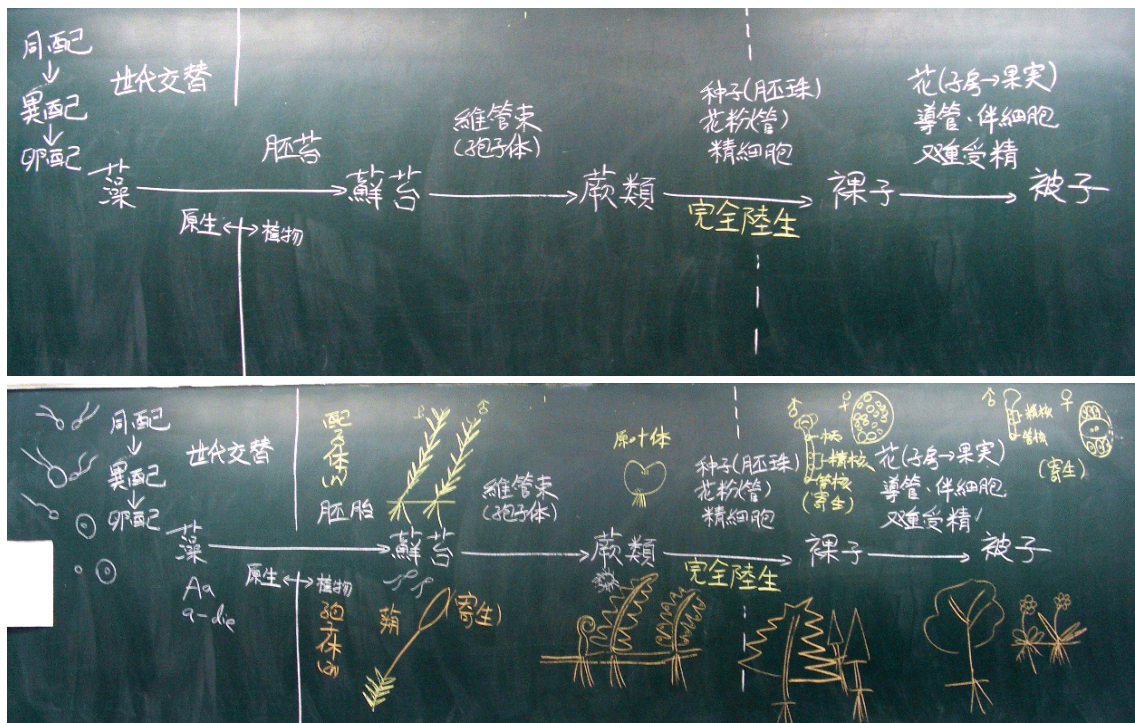 同配
↓
異配
↓
卵配
世代交替
胚苔
維管束
(孢子体)
种子(胚珠)
花粉(管)
精細胞
花(子房→果実)
導管、伴細胞
双重受精
藻 → 蘚苔 → 蕨類 → 裸子 → 被子
原生 ↔ 植物
完全陸生
同配
↓
異配
↓
卵配
世代交替
配子体(n)
胚胎
♂
維管束
(孢子体)
原叶体
种子(胚珠)
花粉(管)
精細胞
♂ ♀
柄
精核
管核
(寄生)
花(子房→果実)
導管、伴細胞
双重受精
♂ ♀
精核
管核
(寄生)
藻 → 蘚苔 → 蕨類 → 裸子 → 被子
Aa
a-die
原生 ↔ 植物
完全陸生
孢子体(2n)
蒴
(寄生)